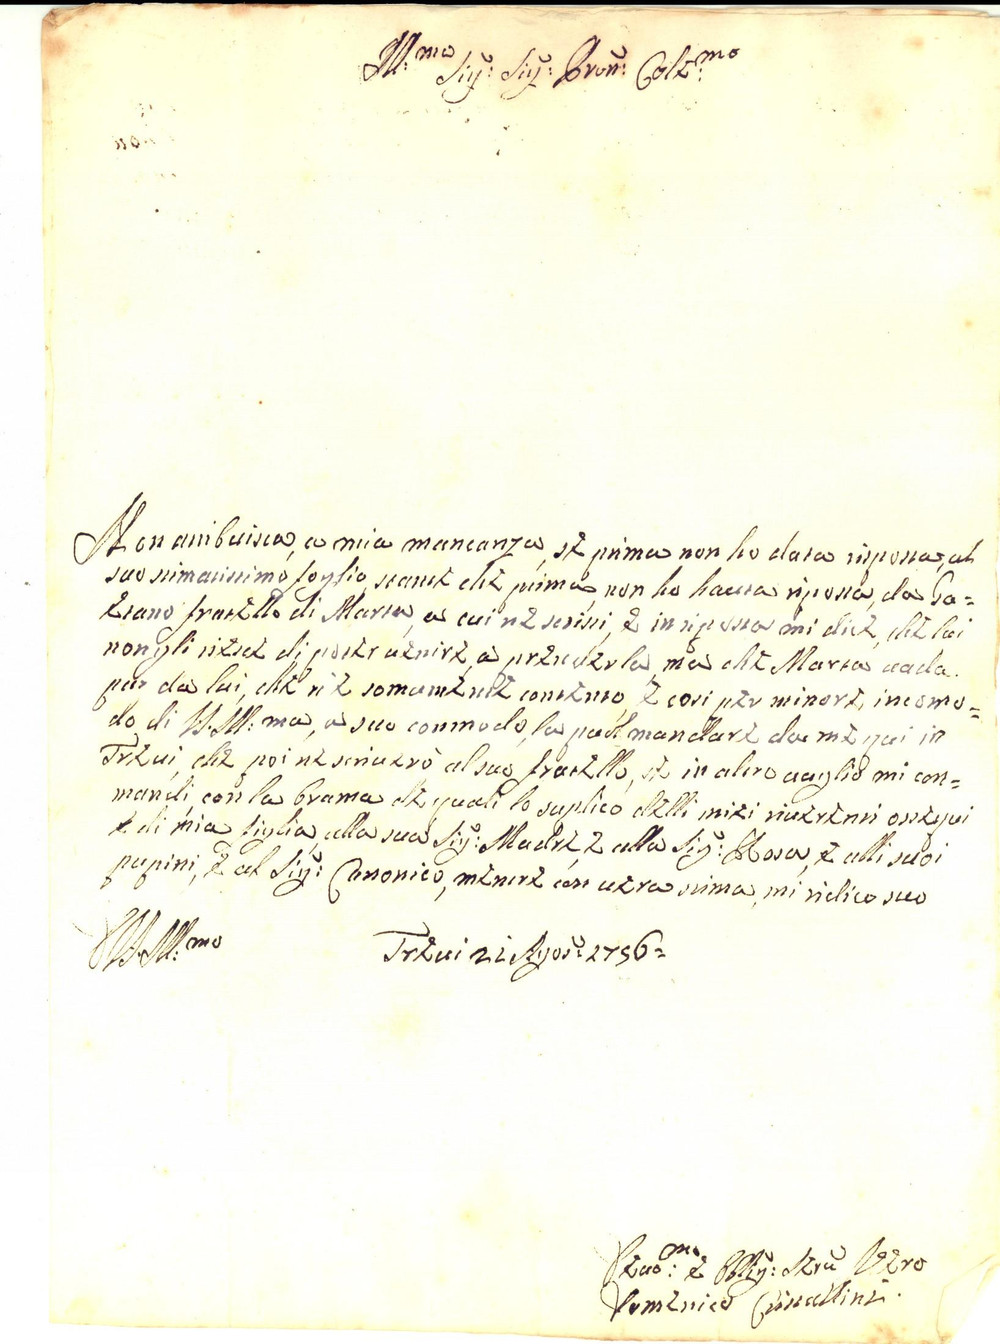 Ill:mo Sig: Sig: Pron: Colt:mo
Non atribuisca, a mia mancanza, se prima non ho data risposta, al
suo stimatissimo foglio, stante che prima, non ho hauta riposta, da Ga=
etano fratello di Marta, a cui ne scrissi, e in riposta mi dice, che lui
non gli riesce di poter uenire, a prenderla ma che Marta uada
pur da lui, che n'è somamente contento, e cosi per minore, incomo=
do di VS Ill:ma, a suo commodo, la può mandare da me qui in
Treui, che poi ne scriuerò al suo fratello, se in altro uaglio mi con=
mandi, con la brama che, quali lo suplico delli miei riuerenti ossequi
e di mia figlia, alla sua Sig: Madre, e alla Sig: Rosa, e alli suoi
pupini, e al Sig: Canonico, mentre con uera stima, mi ridico suo
VS Ill:mo Treui 21 Agos: 1756=
Deuo:mo e Obbg: Seru Vero
Domenico